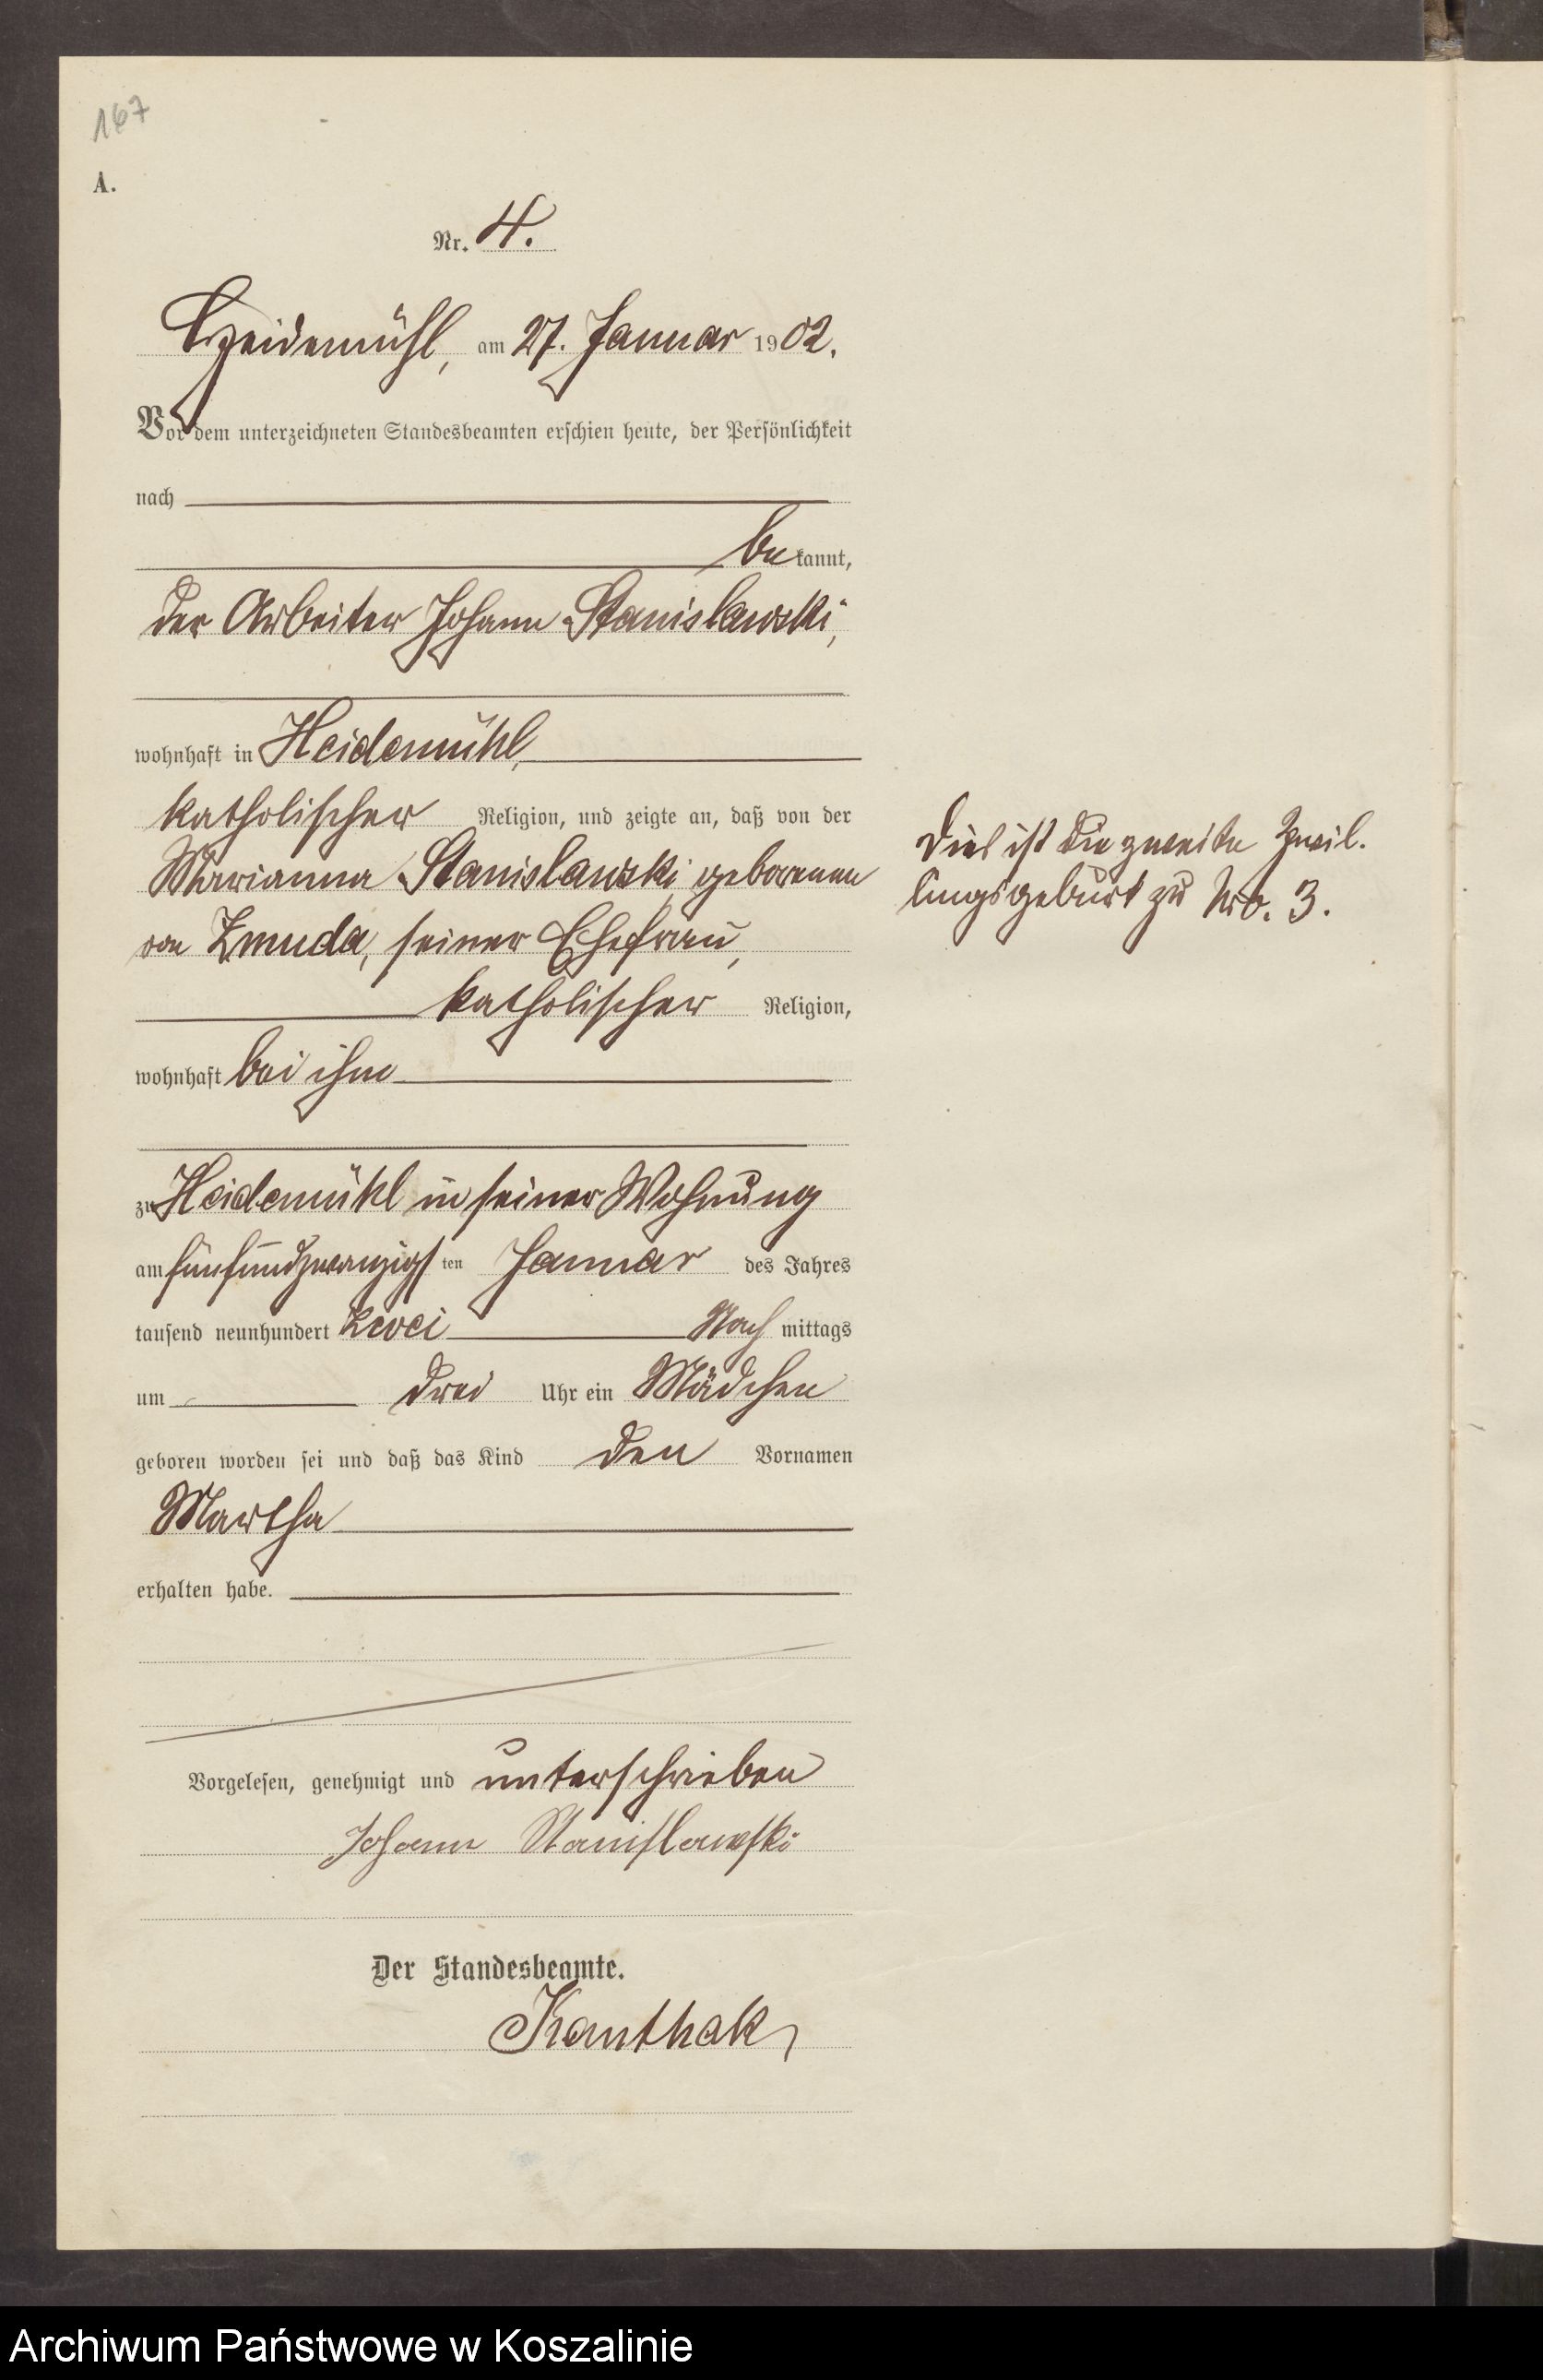 167
A.
Nr. 4.
Heidemühl, am 27. Januar 1902.
Vor dem unterzeichneten Standesbeamten erschien heute, der Persönlichkeit
nach
bekannt,
der Arbeiter Johann Stanislawski,
wohnhaft in Heidemühl,
katholischer Religion, und zeigte an, daß von der
Marianna Stanislawski geborenen
von Zmuda, seiner Ehefrau,
katholischer Religion,
wohnhaft bei ihm
zu Heidemühl in seiner Wohnung
am fünfundzwanzigsten Januar des Jahres
tausend neunhundert zwei Nachmittags
um drei Uhr ein Mädchen
geboren worden sei und daß das Kind den Vornamen
Martha
erhalten habe.
Vorgelesen, genehmigt und unterschrieben
Johann Stanislawski
Der Standesbeamte.
Kanthak
Dies ist die zweite Zwil.
lingsgeburt zu No. 3.
Archiwum Państwowe w Koszalinie